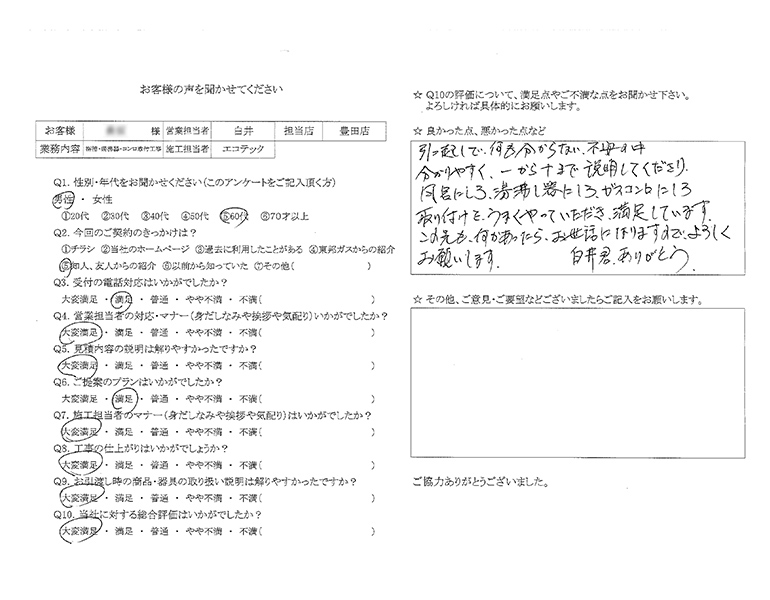 お客様の声を聞かせてください
お客様 様 営業担当者 白井 担当店 豊田店
業務内容 給湯器・コンロ取付工事 施工担当者 エコテック
Q1. 性別・年代をお聞かせください(このアンケートをご記入頂く方)
男性 ・ 女性
①20代 ②30代 ③40代 ④50代 ⑤60代 ⑥70才以上
Q2. 今回のご契約のきっかけは?
①チラシ ②当社のホームページ ③過去に利用したことがある ④東邦ガスからの紹介
⑤知人、友人からの紹介 ⑥以前から知っていた ⑦その他( )
Q3. 受付の電話対応はいかがでしたか?
大変満足 ・ 満足 ・ 普通 ・ やや不満 ・ 不満( )
Q4. 営業担当者の対応・マナー(身だしなみや挨拶や気配り)いかがでしたか?
大変満足 ・ 満足 ・ 普通 ・ やや不満 ・ 不満( )
Q5. 見積内容の説明は解りやすかったですか?
大変満足 ・ 満足 ・ 普通 ・ やや不満 ・ 不満( )
Q6. ご提案のプランはいかがでしたか?
大変満足 ・ 満足 ・ 普通 ・ やや不満 ・ 不満( )
Q7. 施工担当者のマナー(身だしなみや挨拶や気配り)はいかがでしたか?
大変満足 ・ 満足 ・ 普通 ・ やや不満 ・ 不満( )
Q8. 工事の仕上がりはいかがでしょうか?
大変満足 ・ 満足 ・ 普通 ・ やや不満 ・ 不満( )
Q9. お引渡し時の商品・器具の取り扱い説明は解りやすかったですか?
大変満足 ・ 満足 ・ 普通 ・ やや不満 ・ 不満( )
Q10. 当社に対する総合評価はいかがでしたか?
大変満足 ・ 満足 ・ 普通 ・ やや不満 ・ 不満( )
☆ Q10の評価について、満足点やご不満な点をお聞かせ下さい。
よろしければ具体的にお願いします。
☆ 良かった点、悪かった点など
引っ越しで、何も分からない、不安の中
分かりやすく、一から十まで説明してくださり、
風呂にしろ、湯沸し器にしろ、ガスコンロにしろ
取り付けを、うまくやっていただき、満足しています。
この先も、何かあったら、お世話になりますので、よろしく
お願いします。 白井君、ありがとう。
☆ その他、ご意見・ご要望などございましたらご記入をお願いします。
ご協力ありがとうございました。